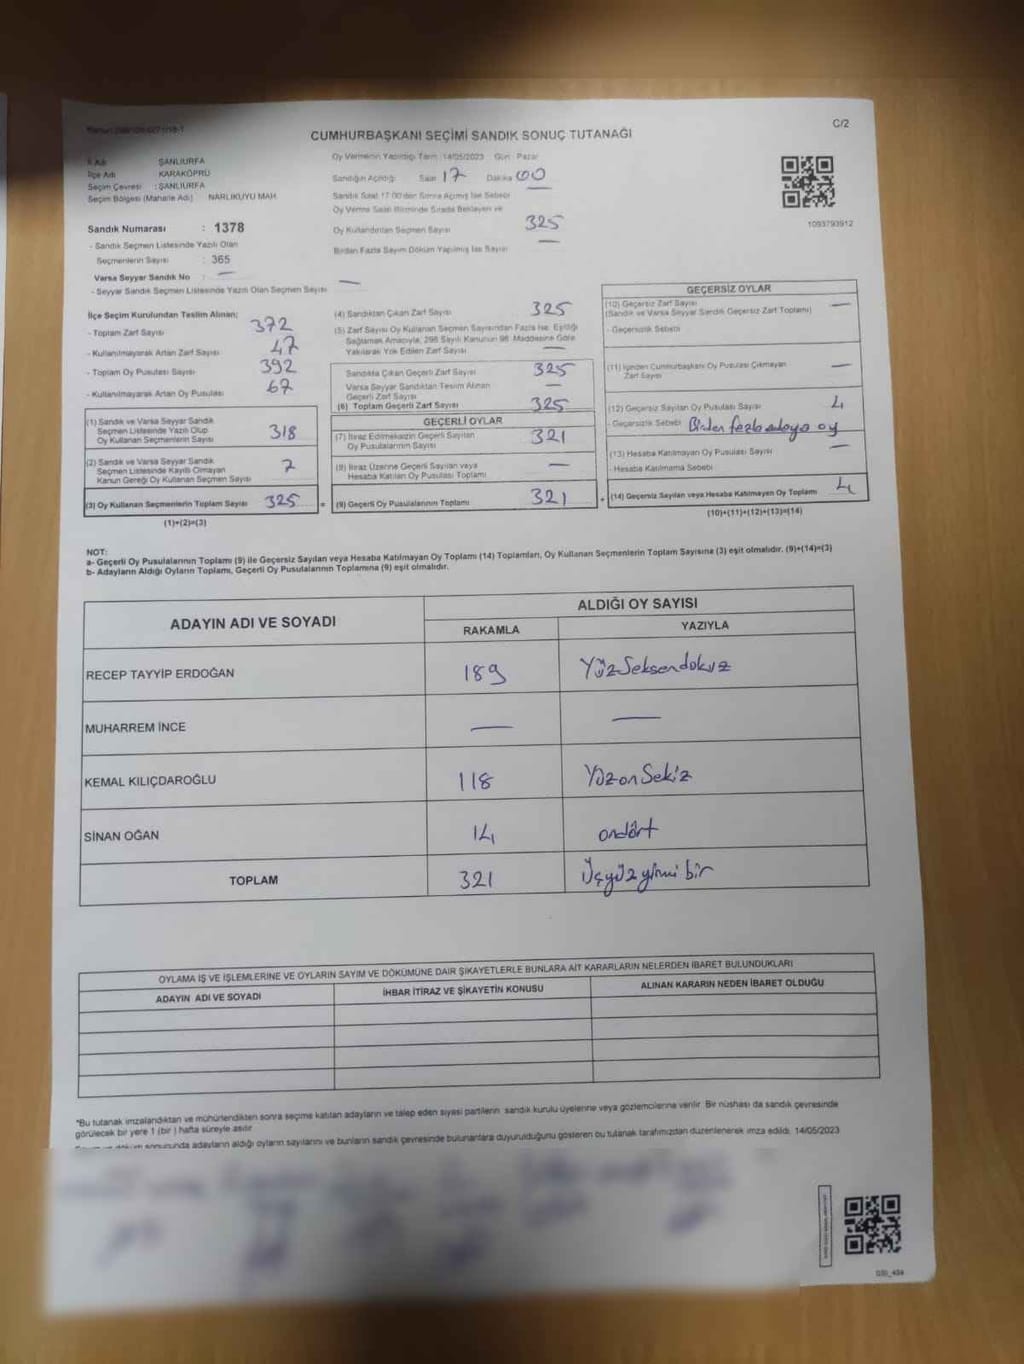 C/2
CUMHURBAŞKANI SEÇİMİ SANDIK SONUÇ TUTANAĞI
İl Adı ŞANLIURFA
İlçe Adı KARAKÖPRÜ
Seçim Çevresi : ŞANLIURFA
Seçim Bölgesi (Mahalle Adı) NARLIKUYU MAH.
Sandık Numarası : 1378
- Sandık Seçmen Listesinde Yazılı Olan
Seçmenlerin Sayısı : 365
Varsa Seyyar Sandık No : —
- Seyyar Sandık Seçmen Listesinde Yazılı Olan Seçmen Sayısı —
Oy Vermenin Yapıldığı Tarih: 14/05/2023 Gün: Pazar
Sandığın Açıldığı Saat 17 Dakika 00
Sandık Saat 17.00'den Sonra Açılmış İse Sebebi —
Oy Verme Saati Bitiminde Sırada Bekleyen ve
Oy Kullandırılan Seçmen Sayısı 325
Birden Fazla Sayım Döküm Yapılmış İse Sayısı —
1093793912
İlçe Seçim Kurulundan Teslim Alınan;
- Toplam Zarf Sayısı 372
- Kullanılmayarak Artan Zarf Sayısı 47
- Toplam Oy Pusulası Sayısı 392
- Kullanılmayarak Artan Oy Pusulası 67
(1) Sandık ve Varsa Seyyar Sandık
Seçmen Listesinde Yazılı Olup
Oy Kullanan Seçmenlerin Sayısı 318
(2) Sandık ve Varsa Seyyar Sandık
Seçmen Listesinde Kayıtlı Olmayan
Kanun Gereği Oy Kullanan Seçmen Sayısı 7
(3) Oy Kullanan Seçmenlerin Toplam Sayısı 325 =
(1)+(2)=(3)
(4) Sandıktan Çıkan Zarf Sayısı 325
(5) Zarf Sayısı Oy Kullanan Seçmen Sayısından Fazla İse, Eşitliği
Sağlamak Amacıyla, 298 Sayılı Kanunun 98. Maddesine Göre
Yakılarak Yok Edilen Zarf Sayısı —
Sandıkta Çıkan Geçerli Zarf Sayısı 325
Varsa Seyyar Sandıktan Teslim Alınan
Geçerli Zarf Sayısı —
(6) Toplam Geçerli Zarf Sayısı 325
GEÇERLİ OYLAR
(7) İtiraz Edilmeksizin Geçerli Sayılan
Oy Pusulalarının Sayısı 321
(8) İtiraz Üzerine Geçerli Sayılan veya
Hesaba Katılan Oy Pusulası Toplamı —
(9) Geçerli Oy Pusulalarının Toplamı 321 +
GEÇERSİZ OYLAR
(10) Geçersiz Zarf Sayısı —
(Sandık ve Varsa Seyyar Sandık Geçersiz Zarf Toplamı)
- Geçersizlik Sebebi
(11) İçinden Cumhurbaşkanı Oy Pusulası Çıkmayan
Zarf Sayısı —
(12) Geçersiz Sayılan Oy Pusulası Sayısı 4
- Geçersizlik Sebebi Birden fazla adaya oy
(13) Hesaba Katılmayan Oy Pusulası Sayısı —
- Hesaba Katılmama Sebebi
(14) Geçersiz Sayılan veya Hesaba Katılmayan Oy Toplamı 4
(10)+(11)+(12)+(13)=(14)
NOT:
a- Geçerli Oy Pusulalarının Toplamı (9) ile Geçersiz Sayılan veya Hesaba Katılmayan Oy Toplamı (14) Toplamları, Oy Kullanan Seçmenlerin Toplam Sayısına (3) eşit olmalıdır. (9)+(14)=(3)
b- Adayların Aldığı Oyların Toplamı, Geçerli Oy Pusulalarının Toplamına (9) eşit olmalıdır.
ADAYIN ADI VE SOYADI ALDIĞI OY SAYISI
RAKAMLA YAZIYLA
RECEP TAYYİP ERDOĞAN 189 YüzSeksendokuz
MUHARREM İNCE — —
KEMAL KILIÇDAROĞLU 118 YüzonSekiz
SİNAN OĞAN 14 ondört
TOPLAM 321 Üçyüzyirmi bir
OYLAMA İŞ VE İŞLEMLERİNE VE OYLARIN SAYIM VE DÖKÜMÜNE DAİR ŞİKAYETLERLE BUNLARA AİT KARARLARIN NELERDEN İBARET BULUNDUKLARI
ADAYIN ADI VE SOYADI İHBAR İTİRAZ VE ŞİKAYETİN KONUSU ALINAN KARARIN NEDEN İBARET OLDUĞU
*Bu tutanak imzalandıktan ve mühürlendikten sonra seçime katılan adayların ve talep eden siyasi partilerin sandık kurulu üyelerine veya gözlemcilerine verilir. Bir nüshası da sandık çevresinde
görülecek bir yere 1 (bir ) hafta süreyle asılır.
sonucunda adayların aldığı oyların sayılarını ve bunların sandık çevresinde bulunanlara duyurulduğunu gösteren bu tutanak tarafımızdan düzenlenerek imza edildi. 14/05/2023